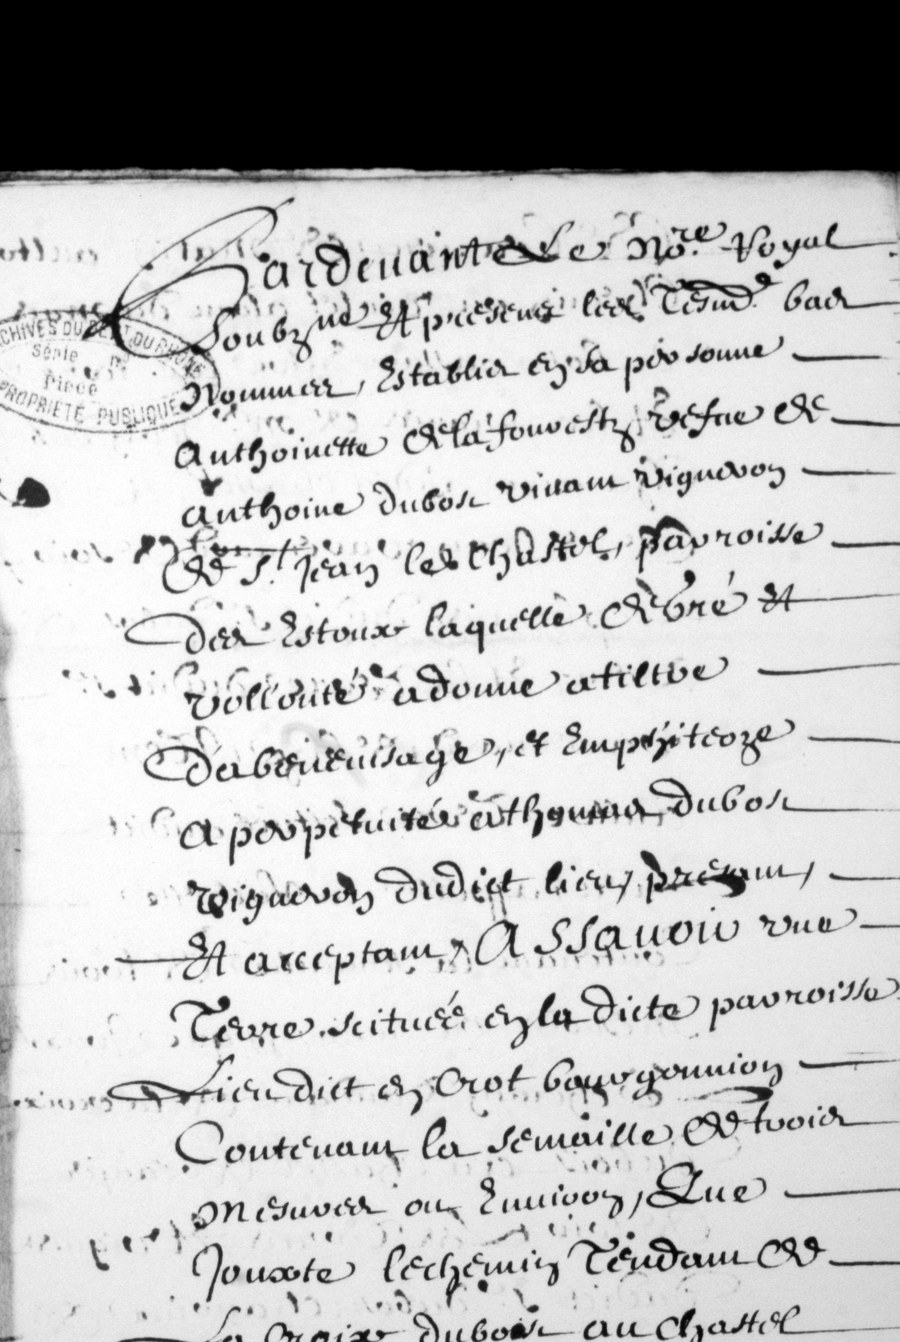 Pardevant Le No.re Royal
soubzné Et présens les Tesmo.
bas
ARCHIVES DU DEPT DU RHONE
Série no
Pièce
PROPRIÉTÉ PUBLIQUE
Nommes, Establie en sa personne
Anthoinette de la fourestz, vefue de
Anthoine dubost vivant vigneron
de St. Jean les Chastel, parroisse
des Estoux laquelle de gré et
vollonté a donne a tiltre
dabeneuisage, et Emphiteoze
A perpetuité a thomas dubost
Vigneron dudict lieu, présant,
Et acceptant, Assauoir vne
Terre scituée en la dicte parroisse
Lieu dict en Crot bourgonnion
Contenant la semaille de trois
Mesures ou Enuiron, Que
Jouxte le chemin Tendant de
La Croix dubost au Chastel